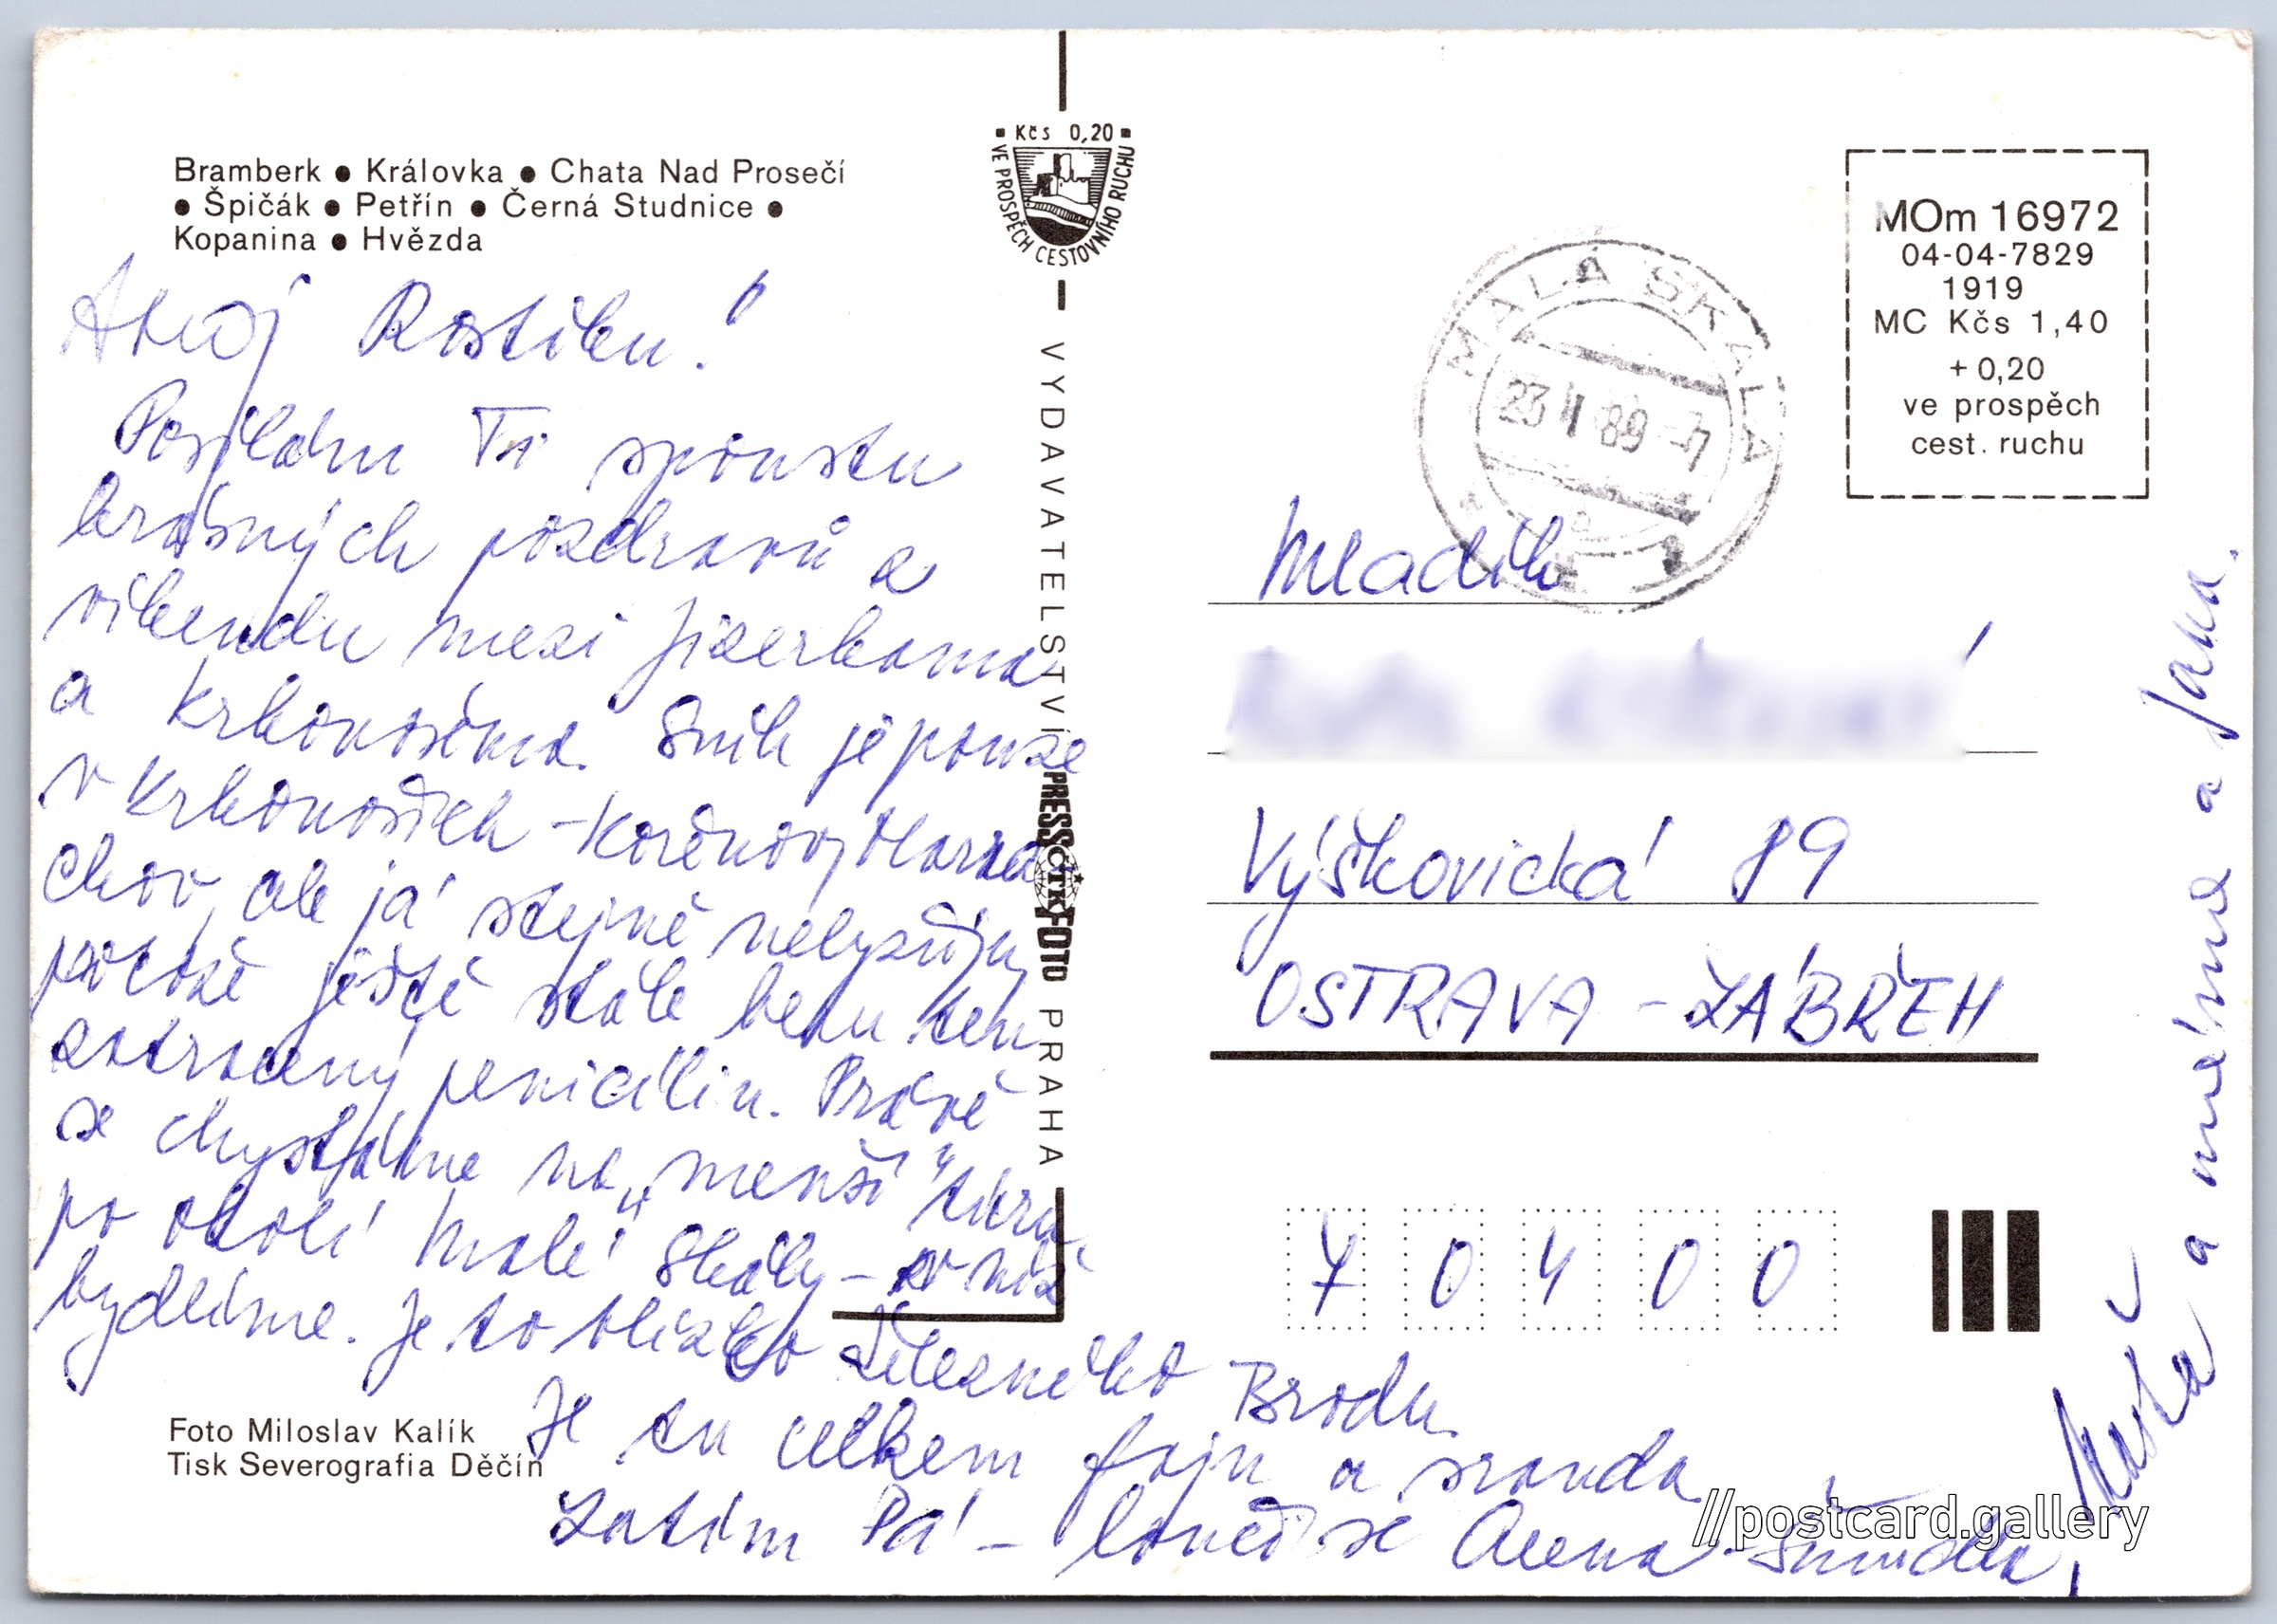 Bramberk ● Královka ● Chata Nad Prosečí
● Špičák ● Petřín ● Černá Studnice ●
Kopanina ● Hvězda
Ahoj Rostíku!
Posílám Ti spoustu
krásných pozdravů z
víkendu mezi Jizerkama
a Krkonošema. Sníh je pouze
v Krkonoších - Kořenov, Harra
chov, ale já stejně nelyžuju,
protože ještě stále beru ten
zatracený penicilin. Právě
se chystáme na „menší" túru
po okolí Malé Skály - v níž
bydlíme. Je to blízko Železného Brodu.
Je tu celkem fajn a sranda
Zatím Pá - loučí se Alena
a máma a Jana.
Foto Miloslav Kalík
Tisk Severografia Děčín
▪ Kčs 0,20 ▪
VE PROSPĚCH CESTOVNÍHO RUCHU
VYDAVATELSTVÍ PRESSFOTO PRAHA
ČTK
MALÁ SKÁLA
23 89 -7
MOm 16972
04-04-7829
1919
MC Kčs 1,40
+ 0,20
ve prospěch
cest. ruchu
Mladík
Výškovická 89
OSTRAVA - ZÁBŘEH
70400
//postcard.gallery